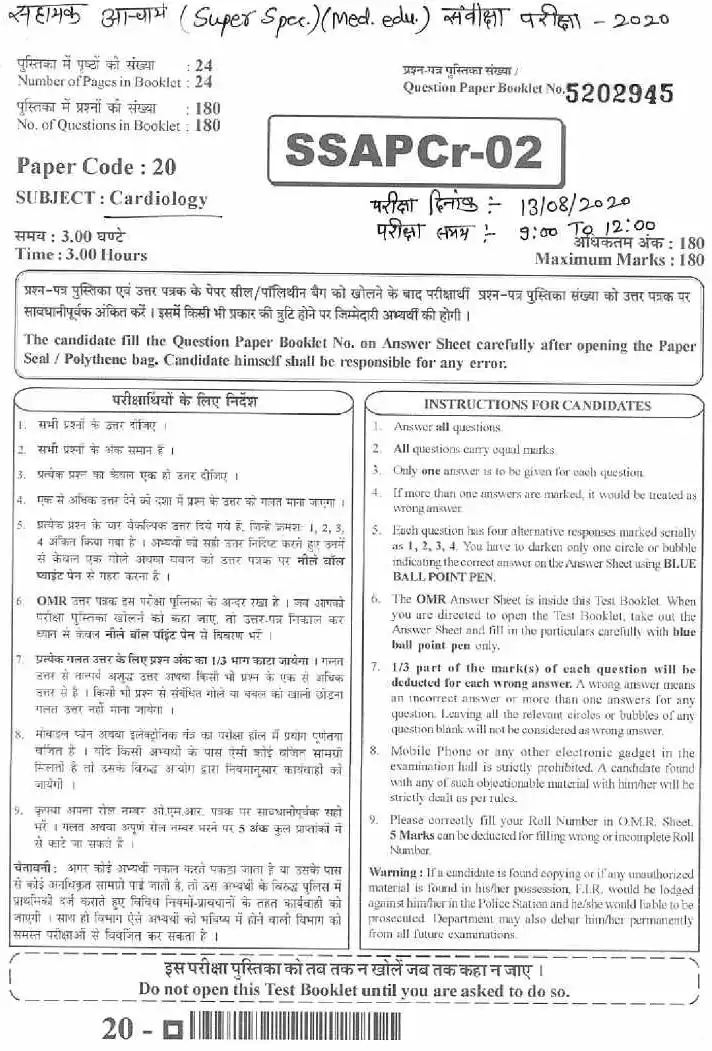 सहायक आचार्य (Super Spec.) (Med. edu.) संवीक्षा परीक्षा - 2020
पुस्तिका में पृष्ठों की संख्या : 24
Number of Pages in Booklet : 24
पुस्तिका में प्रश्नों की संख्या : 180
No. of Questions in Booklet : 180
Paper Code : 20
SUBJECT : Cardiology
समय : 3.00 घण्टे
Time : 3.00 Hours
प्रश्न-पत्र पुस्तिका संख्या /
Question Paper Booklet No. 5202945
SSAPCr-02
परीक्षा दिनांक :- 13/08/2020
परीक्षा समय :- 9:00 To 12:00
अधिकतम अंक : 180
Maximum Marks : 180
प्रश्न-पत्र पुस्तिका एवं उत्तर पत्रक के पेपर सील/पॉलिथीन बैग को खोलने के बाद परीक्षार्थी प्रश्न-पत्र पुस्तिका संख्या को उत्तर पत्रक पर
सावधानीपूर्वक अंकित करें । इसमें किसी भी प्रकार की त्रुटि होने पर जिम्मेदारी अभ्यर्थी की होगी ।
The candidate fill the Question Paper Booklet No. on Answer Sheet carefully after opening the Paper
Seal / Polythene bag. Candidate himself shall be responsible for any error.
परीक्षार्थियों के लिए निर्देश
1. सभी प्रश्नों के उत्तर दीजिए ।
2. सभी प्रश्नों के अंक समान हैं ।
3. प्रत्येक प्रश्न का केवल एक ही उत्तर दीजिए ।
4. एक से अधिक उत्तर देने की दशा में प्रश्न के उत्तर को गलत माना जाएगा ।
5. प्रत्येक प्रश्न के चार वैकल्पिक उत्तर दिये गये हैं, जिन्हें क्रमशः 1, 2, 3,
4 अंकित किया गया है । अभ्यर्थी को सही उत्तर निर्दिष्ट करते हुए उनमें
से केवल एक गोले अथवा बबल को उत्तर पत्रक पर नीले बॉल
प्वाइंट पेन से गहरा करना है ।
6. OMR उत्तर पत्रक इस परीक्षा पुस्तिका के अन्दर रखा है । जब आपको
परीक्षा पुस्तिका खोलने को कहा जाए, तो उत्तर-पत्र निकाल कर
ध्यान से केवल नीले बॉल पॉइंट पेन से विवरण भरें ।
7. प्रत्येक गलत उत्तर के लिए प्रश्न अंक का 1/3 भाग काटा जायेगा । गलत
उत्तर से तात्पर्य अशुद्ध उत्तर अथवा किसी भी प्रश्न के एक से अधिक
उत्तर से है । किसी भी प्रश्न से संबंधित गोले या बबल को खाली छोड़ना
गलत उत्तर नहीं माना जायेगा ।
8. मोबाइल फोन अथवा इलेक्ट्रोनिक यंत्र का परीक्षा हॉल में प्रयोग पूर्णतया
वर्जित है । यदि किसी अभ्यर्थी के पास ऐसी कोई वर्जित सामग्री
मिलती है तो उसके विरुद्ध आयोग द्वारा नियमानुसार कार्यवाही की
जायेगी ।
9. कृपया अपना रोल नम्बर ओ.एम.आर. पत्रक पर सावधानीपूर्वक सही
भरें । गलत अथवा अपूर्ण रोल नम्बर भरने पर 5 अंक कुल प्राप्तांकों में
से काटे जा सकते हैं ।
चेतावनी : अगर कोई अभ्यर्थी नकल करते पकड़ा जाता है या उसके पास
से कोई अनधिकृत सामग्री पाई जाती है, तो उस अभ्यर्थी के विरुद्ध पुलिस में
प्राथमिकी दर्ज कराते हुए विविध नियमों-प्रावधानों के तहत कार्यवाही की
जाएगी । साथ ही विभाग ऐसे अभ्यर्थी को भविष्य में होने वाली विभाग की
समस्त परीक्षाओं से विवर्जित कर सकता है ।
INSTRUCTIONS FOR CANDIDATES
1. Answer all questions.
2. All questions carry equal marks.
3. Only one answer is to be given for each question.
4. If more than one answers are marked, it would be treated as
wrong answer.
5. Each question has four alternative responses marked serially
as 1, 2, 3, 4. You have to darken only one circle or bubble
indicating the correct answer on the Answer Sheet using BLUE
BALL POINT PEN.
6. The OMR Answer Sheet is inside this Test Booklet. When
you are directed to open the Test Booklet, take out the
Answer Sheet and fill in the particulars carefully with blue
ball point pen only.
7. 1/3 part of the mark(s) of each question will be
deducted for each wrong answer. A wrong answer means
an incorrect answer or more than one answers for any
question. Leaving all the relevant circles or bubbles of any
question blank will not be considered as wrong answer.
8. Mobile Phone or any other electronic gadget in the
examination hall is strictly prohibited. A candidate found
with any of such objectionable material with him/her will be
strictly dealt as per rules.
9. Please correctly fill your Roll Number in O.M.R. Sheet.
5 Marks can be deducted for filling wrong or incomplete Roll
Number.
Warning : If a candidate is found copying or if any unauthorized
material is found in his/her possession, F.I.R. would be lodged
against him/her in the Police Station and he/she would liable to be
prosecuted. Department may also debar him/her permanently
from all future examinations.
इस परीक्षा पुस्तिका को तब तक न खोलें जब तक कहा न जाए ।
Do not open this Test Booklet until you are asked to do so.
20 -